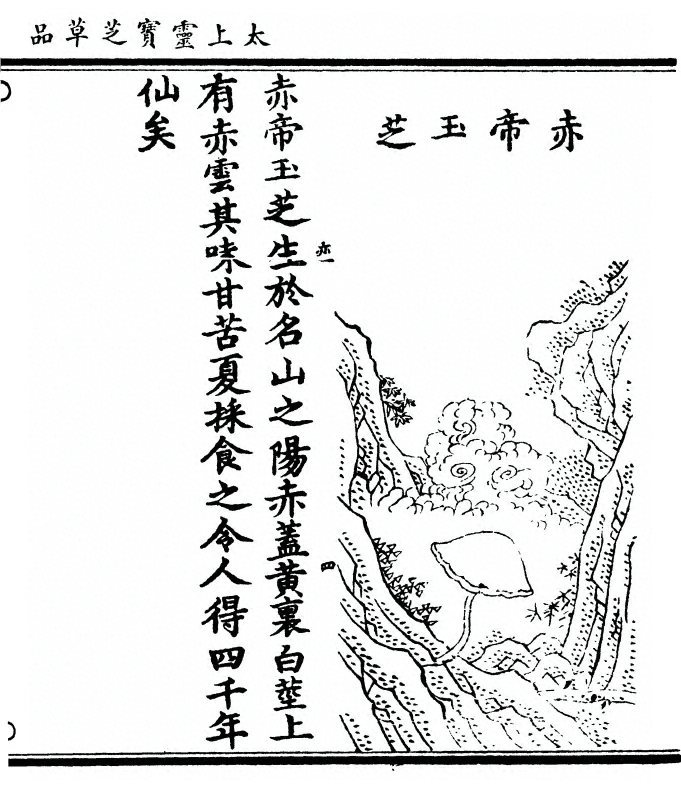 太上靈寶芝草品
赤帝玉芝
亦一
四
赤帝玉芝生於名山之陽赤蓋黃裏白莖上
有赤雲其味甘苦夏採食之令人得四千年
仙矣